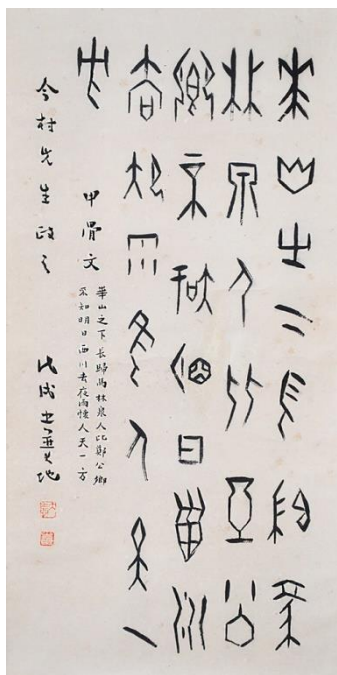 華山之下長歸馬
林泉人比鄭公
鄉不知明日西川
去夜雨懷人天一
方
甲骨文
華山之下長歸馬林泉人比鄭公鄉
不知明日西川去夜雨懷人天一方
今村先生政之